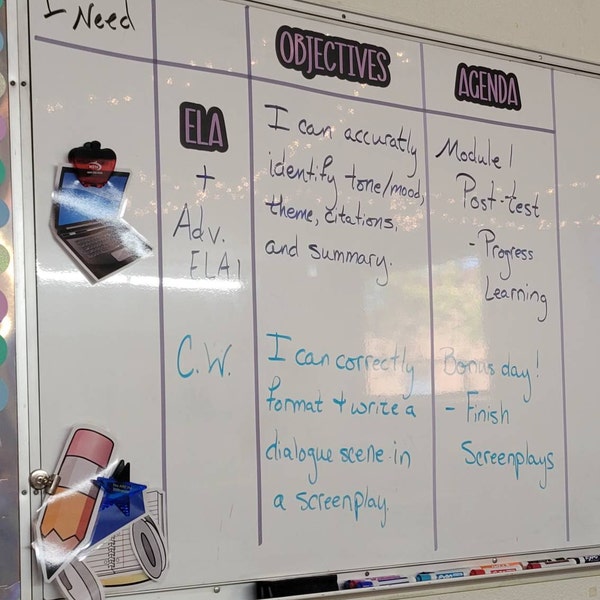 I Need
OBJECTIVES
AGENDA
ELA
+
Adv.
ELA I
I can accuratly
identify tone/mood,
theme, citations,
and summary.
Module 1
Post-test
- Progress
Learning
C.W.
I can correctly
format + write a
dialogue scene in
a screenplay.
Bonus day!
- Finish
Screenplays